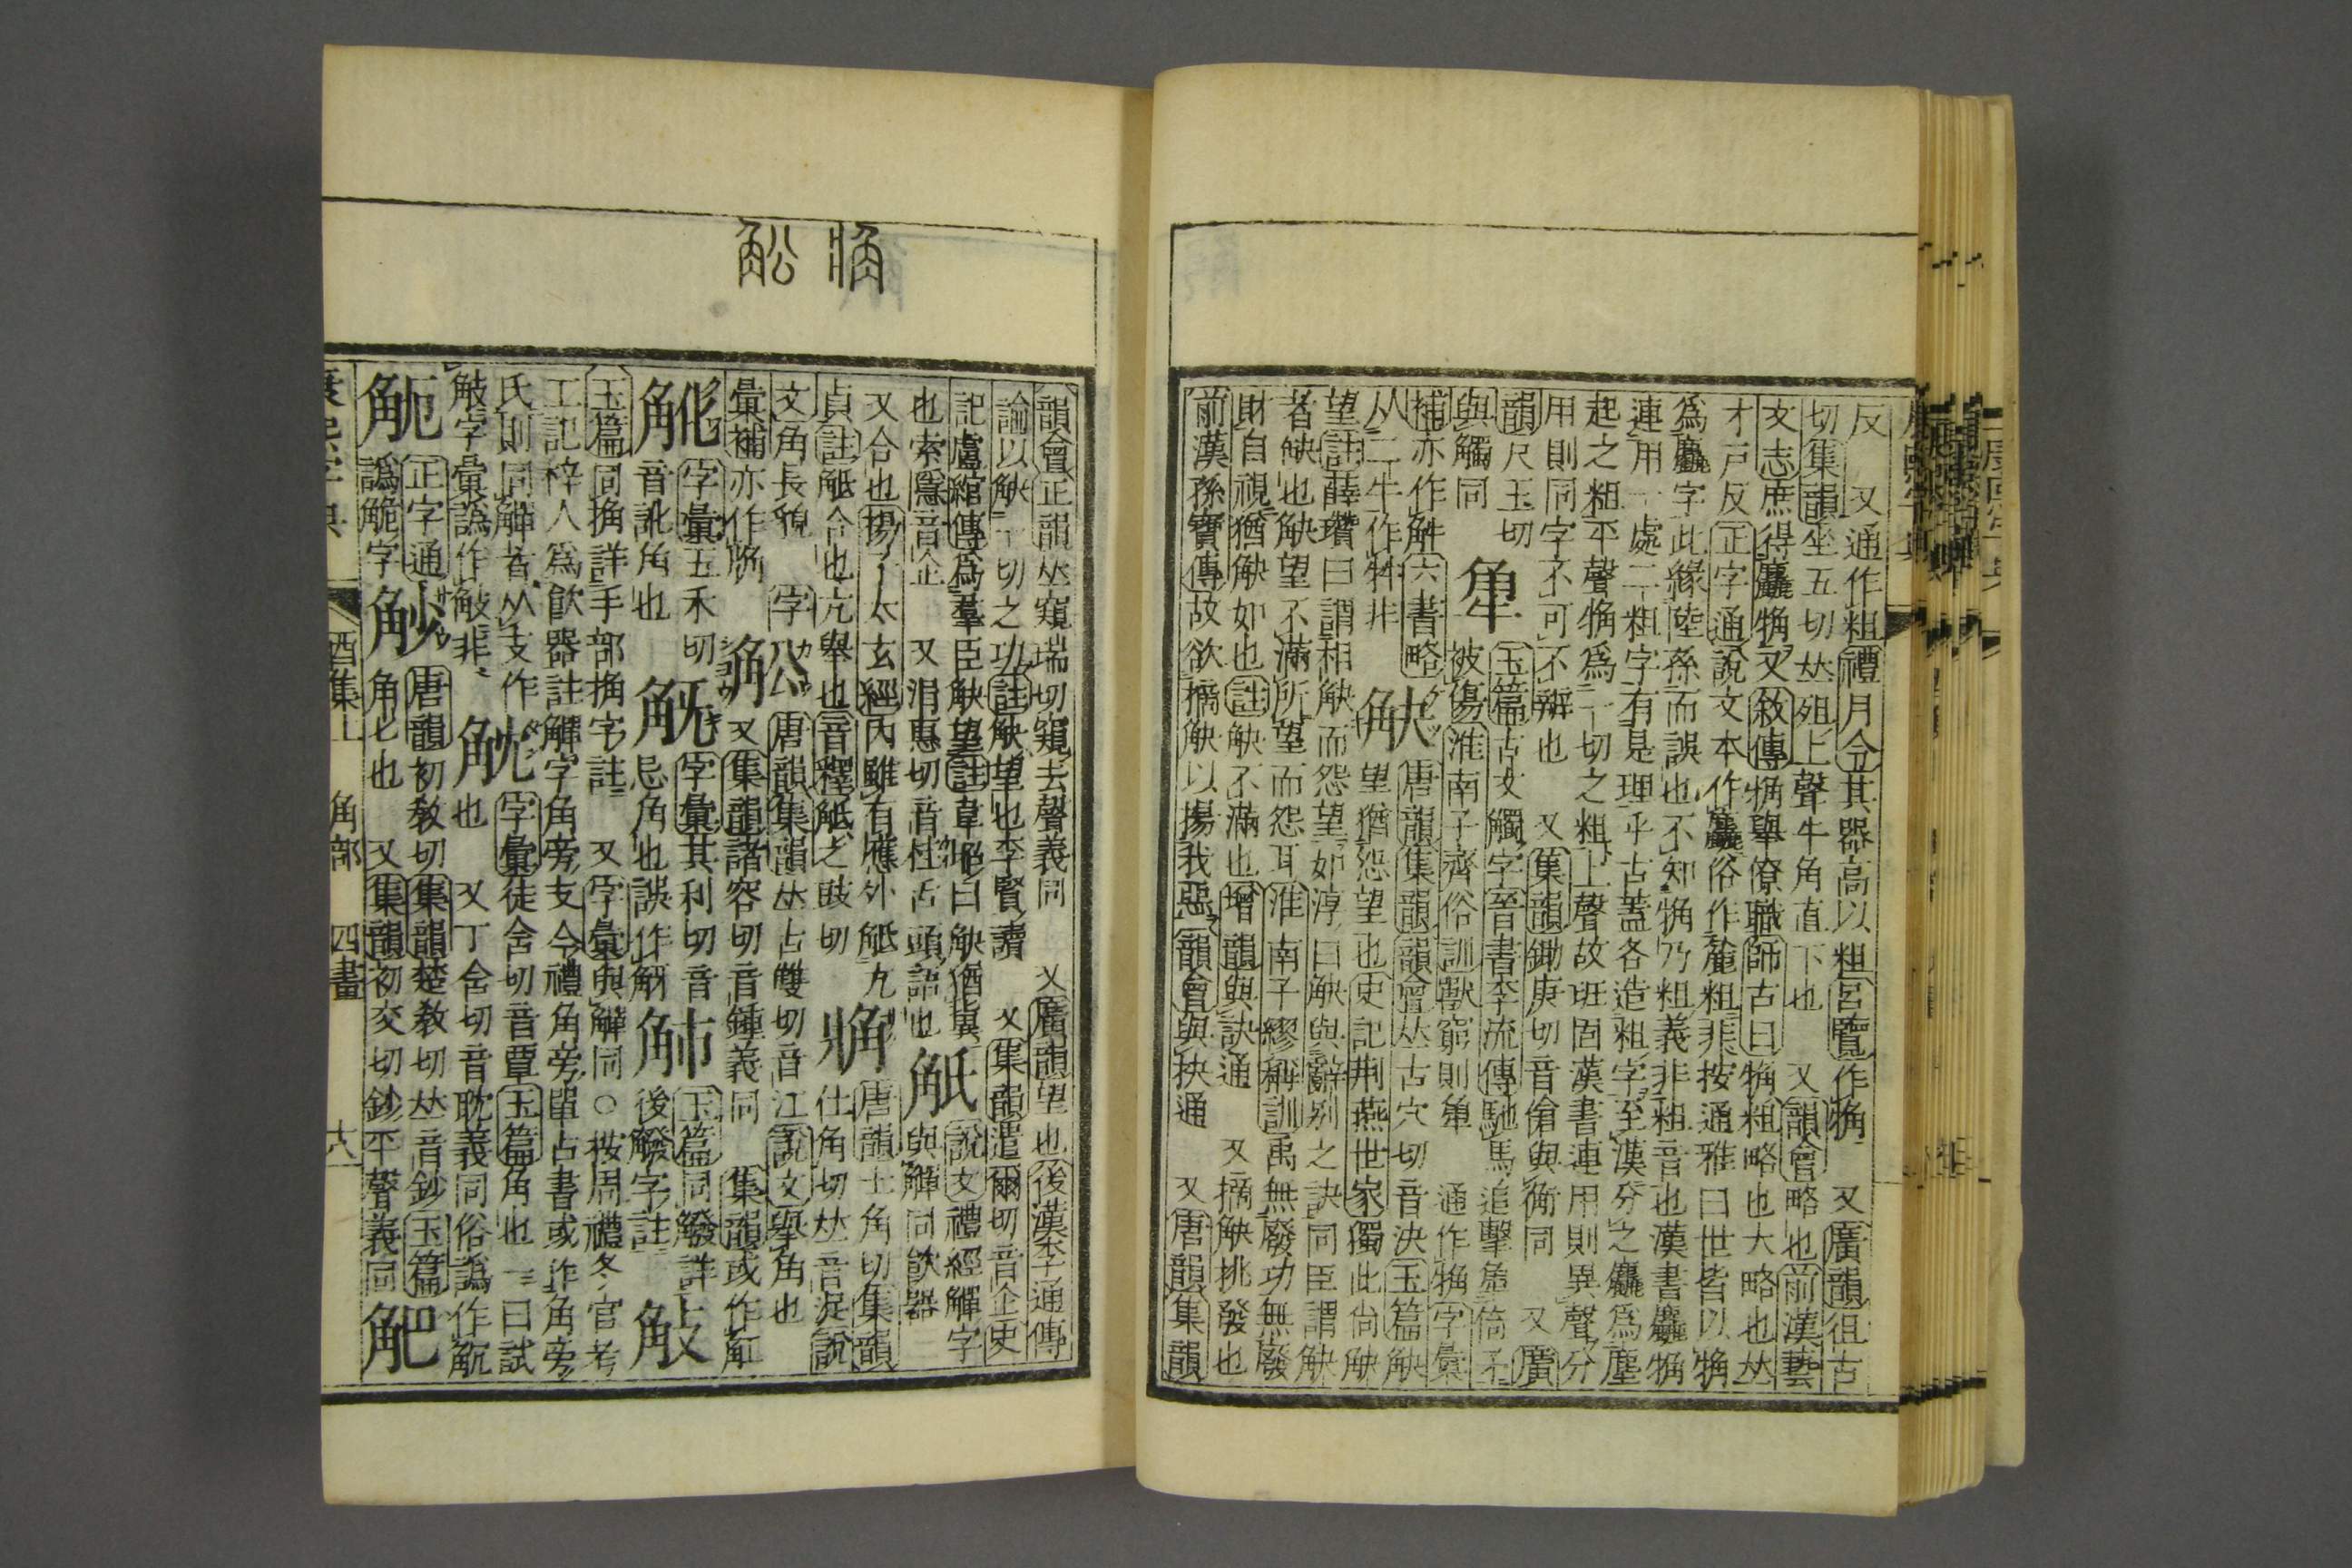 反　又通作粗禮月令其器高以粗呂覽作觕　又廣韻徂古
切集韻坐五切𠀤殂上聲牛角直下也　又韻會略也前漢藝
文志庶得麤觕又敘傳觕舉僚職師古曰觕粗略也大略也𠀤
才戸反正字通說文本作麤俗作麄粗非按通雅曰世皆以觕
爲麤字此緣陸孫而誤也不知觕乃粗義非粗音也漢書麤觕
連用一處二粗字有是理乎古蓋各造粗字至漢分之麤爲麈
起之粗平聲觕爲一切之粗上聲故班固漢書連用則異聲分
用則同字不可不辯也　又集韻鋤庚切音傖與衡同　又廣
韻尺玉切
與觸同
觠 玉篇古文觸字晉書李流傳馳馬追擊𧣾倚矛
被傷淮南子齊俗訓獸窮則𧣾　通作觕字彙
補亦作觧六書略
从二牛作牪非
觖 唐韻集韻韻會𠀤古穴切音決玉篇觖
望猶怨望也史記荆燕世家獨此尙觖
望註薛瓚曰謂相觖而怨望如淳曰觖與辭别之訣同臣謂觖
者缺也觖望不滿所望而怨耳淮南子繆稱訓禹無廢功無廢
財自視猶觖如也註觖不滿也增韻與訣通　又摘觖挑發也
前漢孫寶傳故欲摘觖以揚我惡韻會與抉通　又唐韻集韻
韻會正韻𠀤窺瑞切窺去聲義同　又廣韻望也後漢李通傳
論以觖一切之功註觖望也李賢讀　又集韻遣爾切音企史
記盧綰傳爲羣臣觖望註韋昭曰觖猶冀
也索隱音企　又涓惠切音桂舌頭語也
觗 說文禮經觶字
與觶同飮器
又合也揚子太玄經內雖有應外觗亢
貞註觗合也亢舉也音釋觗之豉切
𧣈 唐韻士角切集韻
仕角切𠀤音浞說
文角長貌　字
彙補亦作觞
舩 唐韻集韻𠀤古雙切音江說文舉角也
又集韻諸容切音鍾義同　集韻或作䚗
𧣋 字彙五禾切
音訛角也
𧣊 字彙其利切音
忌角也誤作觨
𧣏 玉篇同觺詳
後觺字註
𧣌
玉篇同捔詳手部捔字註　又字彙與觶同○按周禮冬官考
工記梓人爲飮器註觶字角旁支今禮角旁單古書或作角旁
氏則同觶者从支作
𧣨字彙譌作𧣌非
𧣎 字彙徒含切音覃玉篇角也一曰試
也　又丁含切音耽義同俗譌作𧣅
𧣆 正字通
譌觤字
觘 唐韻初敎切集韻楚敎切𠀤音鈔玉篇
角匕也　又集韻初交切鈔平聲義同
𧣃
康熙字典　酉集上　角部　四畫　十八
𧣈
舩